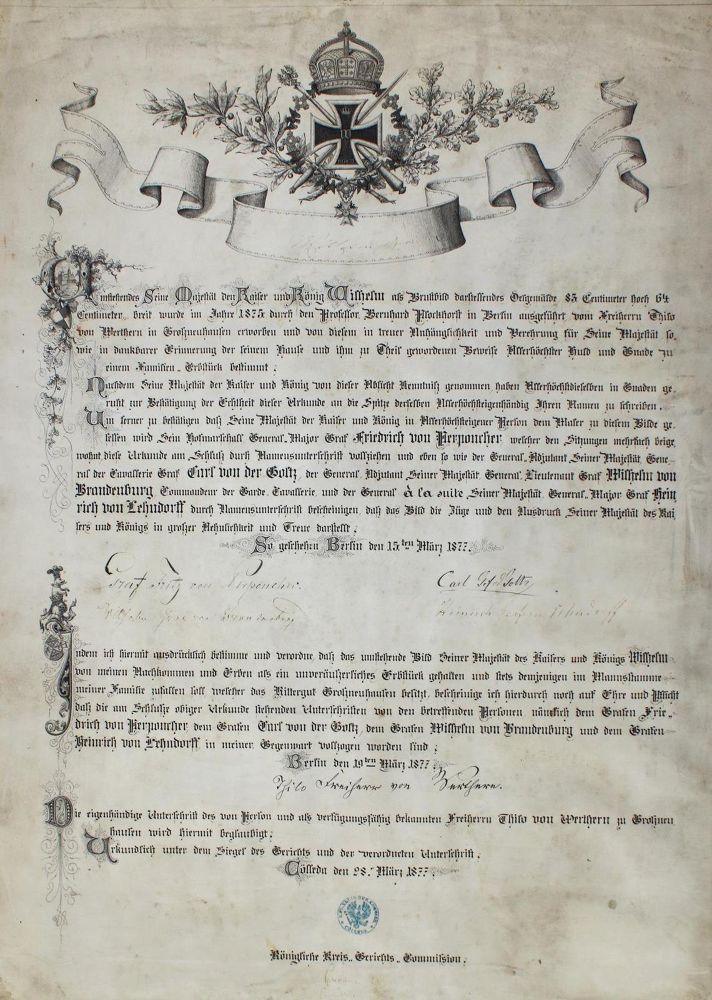 Umstehendes Seine Majestät den Kaiser und König Wilhelm als Brustbild darstellendes Oelgemälde 85 Centimeter hoch 64
Centimeter breit wurde im Jahre 1875 durch den Professor Bernhard Plockhorst in Berlin ausgeführt vom Freiherrn Thilo
von Werthern in Großneuhausen erworben und von diesem in treuer Anhänglichkeit und Verehrung für Seine Majestät so„
wie in dankbarer Erinnerung der seinem Hause und ihm zu Theil gewordenen Beweise Allerhöchster Huld und Gnade zu
einem Familien„Erbstück bestimmt.
Nachdem Seine Majestät der Kaiser und König von dieser Absicht Kenntniß genommen haben Allerhöchstdieselben in Gnaden ge„
ruht zur Bestätigung der Echtheit dieser Urkunde an die Spitze derselben Allerhöchsteigenhändig Ihren Namen zu schreiben.
Um ferner zu bestätigen daß Seine Majestät der Kaiser und König in Allerhöchsteigener Person dem Maler zu diesem Bilde ge„
sessen wird Sein Hofmarschall General„Major Graf Friedrich von Perponcher welcher den Sitzungen mehrfach beige„
wohnt diese Urkunde am Schluß durch Namensunterschrift vollziehen und eben so wie der General„Adjutant Seiner Majestät Gene„
ral der Cavallerie Graf Carl von der Goltz, der General„Adjutant Seiner Majestät General„Lieutenant Graf Wilhelm von
Brandenburg Commandeur der Garde„Cavallerie, und der General à la suite Seiner Majestät General„Major Graf Hein„
rich von Lehndorff durch Namensunterschrift bescheinigen, daß das Bild die Züge und den Ausdruck Seiner Majestät des Kai„
sers und Königs in großer Aehnlichkeit und Treue darstellt.
So geschehen Berlin den 15ten März 1877.
Graf Fritz von Perponcher. Carl Graf Goltz
Wilhelm Graf von Brandenburg Heinrich Lehndorff
Indem ich hiermit ausdrücklich bestimme und verordne, daß das umstehende Bild Seiner Majestät des Kaisers und Königs Wilhelm
von meinen Nachkommen und Erben als ein unveräußerliches Erbstück gehalten und stets demjenigen im Mannsstamme
meiner Familie zufallen soll welcher das Rittergut Großneuhausen besitzt, bescheinige ich hierdurch noch auf Ehre und Pflicht
daß die am Schlusse obiger Urkunde stehenden Unterschriften von den betreffenden Personen nämlich dem Grafen Frie„
drich von Perponcher, dem Grafen Carl von der Goltz, dem Grafen Wilhelm von Brandenburg und dem Grafen
Heinrich von Lehndorff in meiner Gegenwart vollzogen worden sind.
Berlin den 19ten März 1877.
Thilo Freiherr von Werthern.
Die eigenhändige Unterschrift des von Person und als verfügungsfähig bekannten Freiherrn Thilo von Werthern zu Großneu„
hausen wird hiermit beglaubigt.
Urkundlich unter dem Siegel des Gerichts und der verordneten Unterschrift.
Cölleda den 28. März 1877.
Königliche Kreis„Gerichts„Commission.